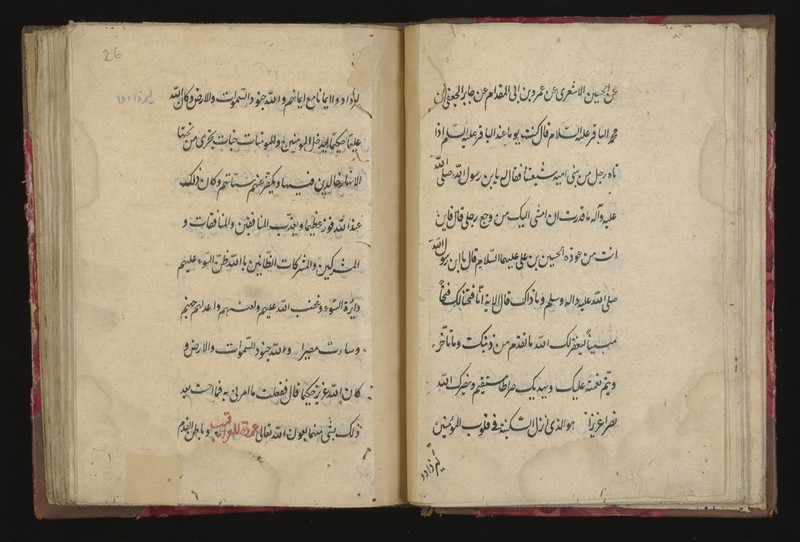 عن الحسين الاشعري عن عمرو بن ابي المقدام عن جابر الجعفي عن
محمد الباقر عليه السلام قال كنت يوما عند الباقر عليه السلام اذا
تاه رجل من بني اميه من شيعتنا فقال له يا بن رسول الله صلى الله
عليه وآله ما قدرت ان امشي اليك من وجع رجلي قال فاين
انت من عوذة الحسين بن علي عليهما السلام قال يا بن رسول الله
صلى الله عليه واله وسلم وما ذاك قال الاية انا فتحنا لك فتحا
مبينا ليغفر لك الله ما تقدم من ذنبك وما تأخر
ويتم نعمته عليك ويهديك صراطا مستقيم وينصرك الله
نصرا عزيزا هو الذي انزل السكينة في قلوب المؤمنين
ليزدادو
26
ليزدادوا
ليزدادوا ايمانا مع ايمانهم و الله جنود السموات والارض وكان الله
عليما حكيما ليدخل المؤمنين والمؤمنات جنات تجري من تحتها
الانهار خالدين فيها ويكفر عنهم سيئاتهم وكان ذلك
عند الله فوزا عظيما ويعذب المنافقين والمنافقات و
المشركين والمشركات الظانين بالله ظن السوء عليهم
دائرة السوء وغضب الله عليهم ولعنهم واعد لهم جهنم
وساءت مصيرا و لله جنود السموات والارض و
كان الله عزيزا حكيما قال ففعلت ما امرني به فما احسست بعد
ذلك بشئ منها بعون الله تعالى عوذة للعراقيب و باطن القدم